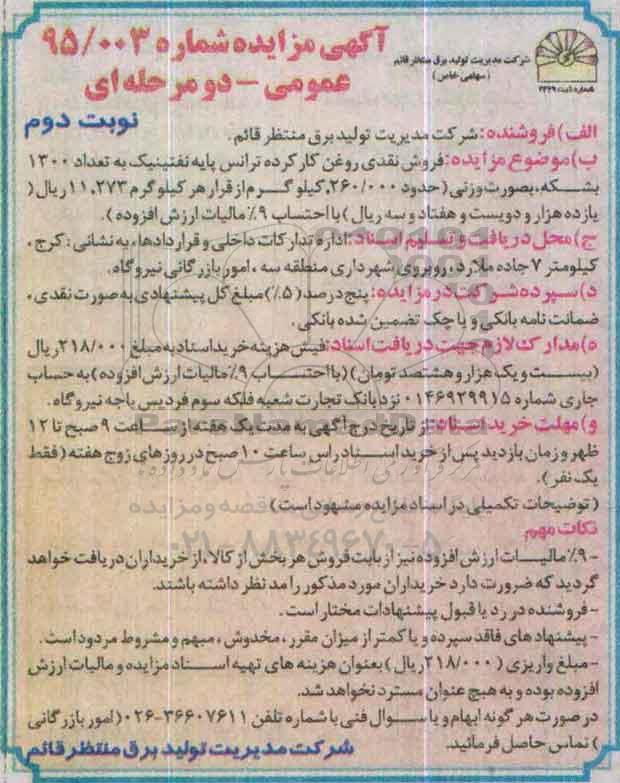 آگهی مزایده شماره ۹۵/۰۰۳
عمومی - دو مرحله ای
نوبت دوم
شرکت مدیریت تولید برق منتظر قائم
(سهامی خاص)
شماره ثبت: ۲۳۲۹
الف) فروشنده: شرکت مدیریت تولید برق منتظر قائم.
ب) موضوع مزایده: فروش نقدی روغن کارکرده ترانس پایه نفتینیک به تعداد ۱۳۰۰
بشکه، بصورت وزنی (حدود ۲۶۰/۰۰۰ کیلو گرم از قرار هر کیلوگرم ۱۱.۲۷۳ ریال (
یازده هزار و دویست و هفتاد و سه ریال) با احتساب ۹٪ مالیات ارزش افزوده).
ج) محل دریافت و تسلیم اسناد: اداره تدارکات داخلی و قراردادها، به نشانی: کرج،
کیلومتر ۷ جاده ملارد، روبروی شهرداری منطقه سه، امور بازرگانی نیروگاه.
د) سپرده شرکت در مزایده: پنج درصد (۵٪) مبلغ کل پیشنهادی به صورت نقدی،
ضمانت نامه بانکی و یا چک تضمین شده بانکی.
ه) مدارک لازم جهت دریافت اسناد: فیش هزینه خرید اسناد به مبلغ ۲۱۸/۰۰۰ ریال
(بیست و یک هزار و هشتصد تومان) (با احتساب ۹٪ مالیات ارزش افزوده) به حساب
جاری شماره ۰۱۴۶۹۲۹۹۱۵ نزد بانک تجارت شعبه فلکه سوم فردیس یا جه نیروگاه.
و) مهلت خرید اسناد: از تاریخ درج آگهی به مدت یک هفته از ساعت ۹ صبح تا ۱۲
ظهر و زمان بازدید پس از خرید اسناد راس ساعت ۱۰ صبح در روزهای زوج هفته (فقط
یک نفر).
(توضیحات تکمیلی در اسناد مزایده مشهود است)
نکات مهم
- ۹٪ مالیات ارزش افزوده نیز از بابت فروش هر بخش از کالا، از خریداران دریافت خواهد
گردید که ضرورت دارد خریداران مورد مذکور را مد نظر داشته باشند.
- فروشنده در رد یا قبول پیشنهادات مختار است.
- پیشنهادهای فاقد سپرده و یا کمتر از میزان مقرر، مخدوش، مبهم و مشروط مردود است.
- مبلغ واریزی (۲۱۸/۰۰۰ ریال) بعنوان هزینه های تهیه اسناد مزایده و مالیات ارزش
افزوده بوده و به هیچ عنوان مسترد نخواهد شد.
در صورت هر گونه ابهام و یا سوال فنی با شماره تلفن ۳۶۶۰۷۶۱۱-۰۲۶ (امور بازرگانی
) تماس حاصل فرمائید.
شرکت مدیریت تولید برق منتظر قائم
۰۲۱-۸۸۳۴۹۶۷۰-۵